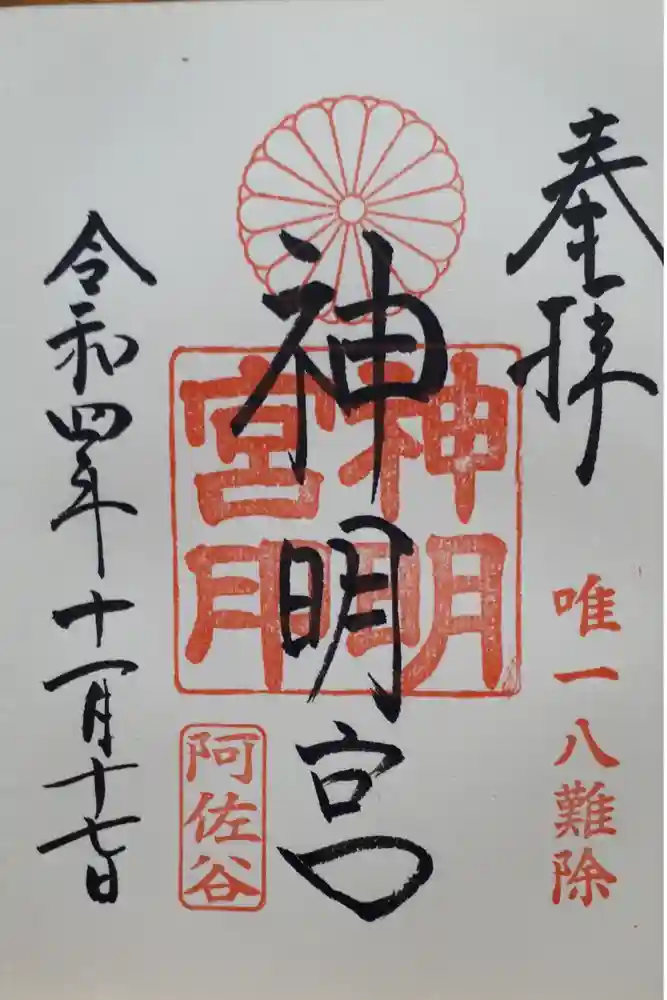 奉拝
唯一八難除
神明宮
神明宮
阿佐谷
令和四年十一月十七日